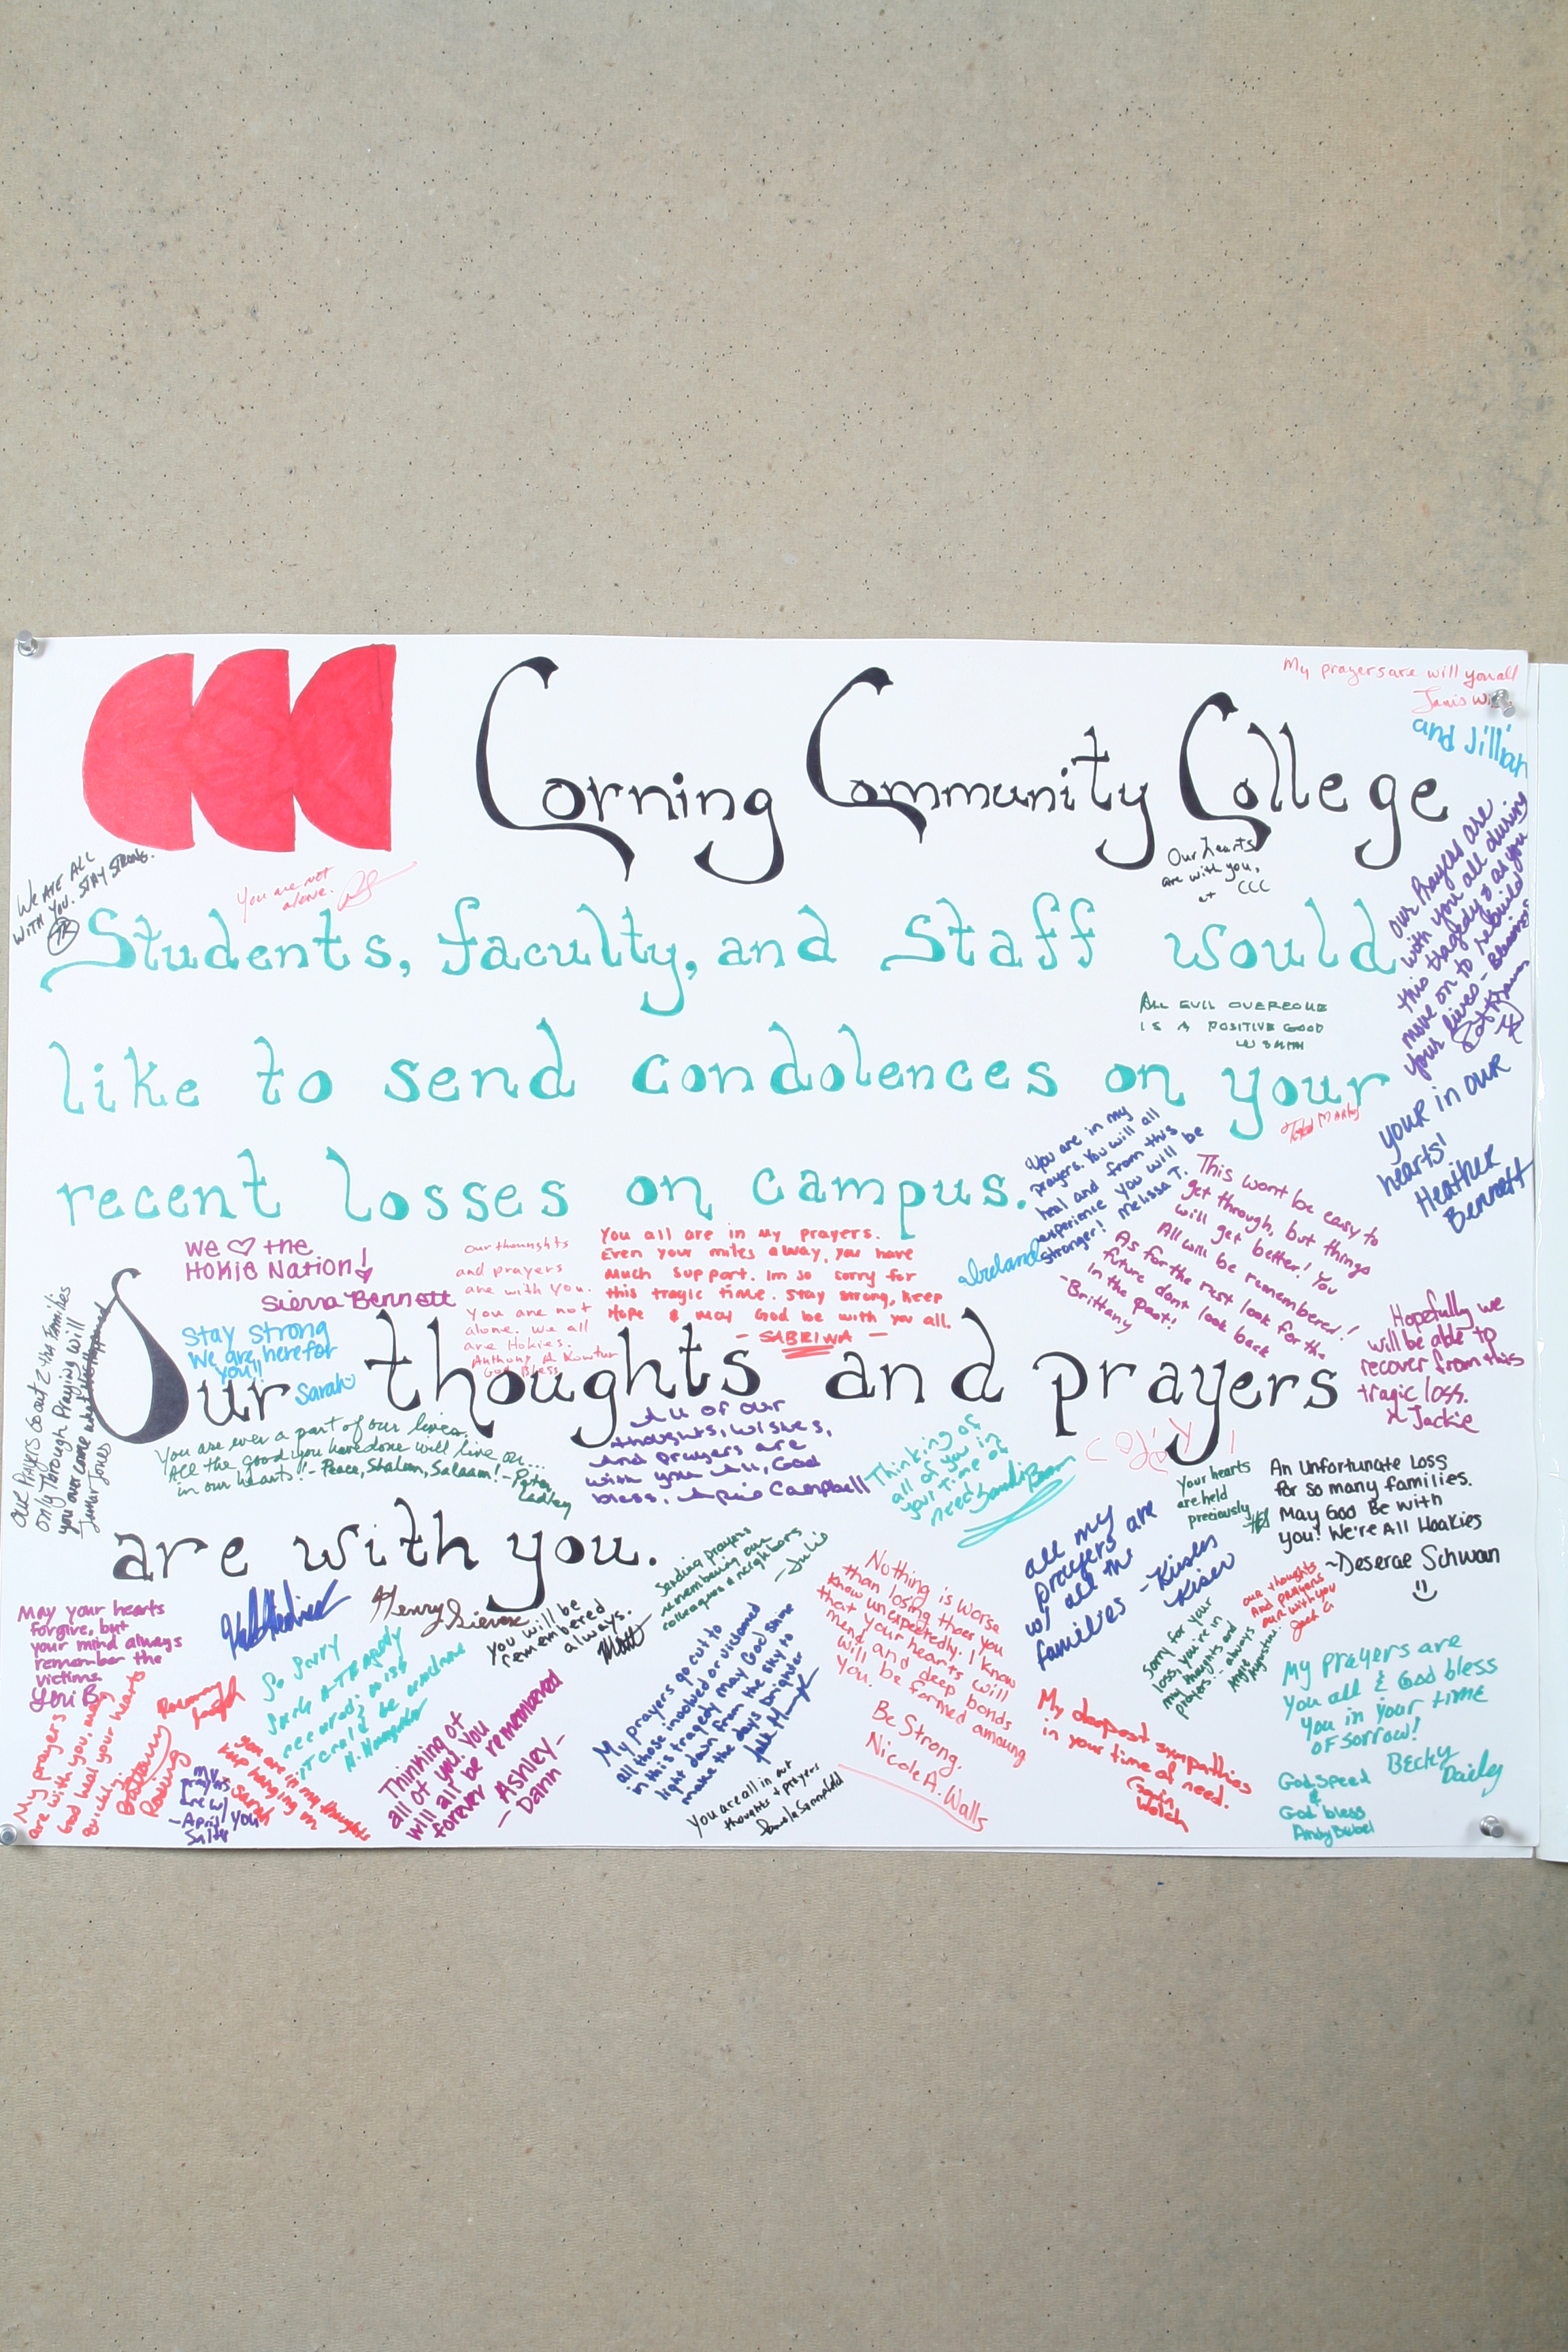 Corning Community College
My prayers are will you all
Janis
and Jillian
We are all
with you. Stay strong.
You are not
alone.
Our hearts
are with you,
at CCC
Students, faculty, and staff would
our Prayers are
with you all during
this tragedy & as you
move on to rebuild
your lives - Blessings
All evil overcome
is a positive good
W Smith
like to send condolences on your
your in our
hearts!
Heather
Bennett
You are in my
prayers. You will all
heal and from this
experience you will be
stronger! Melissa T.
Ireland
recent losses on campus.
This wont be easy to
get through, but things
will get better! You
All will be remembered!
As for the rest look for the
future dont look back
in the past!
-Brittany
We ♡ the
Hokie Nation!
Sierra Bennett
our thoughts
and prayers
are with you.
you are not
alone. we all
are Hokies.
Anthony A. Kowtur
God Bless
You all are in my prayers.
Even your miles away, you have
much support. Im so sorry for
this tragic time. Stay strong, keep
Hope & may God be with you all.
- SABRINA -
Stay Strong
We are here for
you!!
Sarah
Hopefully we
will be able to
recover from this
tragic loss.
Jackie
Our thoughts and prayers
Our Prayers Go out 2 tha Families
only Through Praying will
you over come what has happened
Jumar Jones
You are ever a part of our lives.
All the good you have done will live on...
in our hearts! - Peace, Shalom, Salaam! - Peter
All of our
thoughts, wishes,
and prayers are
with you All, God
bless, April Campbell
Thinking of
all of you in
your time of
need
Your hearts
are held
preciously
An Unfortunate Loss
for so many families.
May God Be with
you! We're All Hoakies
~Deserae Schwan
are with you.
all my
prayers are
w/ all the
families - Kirsten
Kiser
Sending prayers
remembering our
colleagues & neighbors
-Julie
May your hearts
forgive, but
your mind always
remember the
victims
Lori B.
Henry Sievers
You will be
remembered
always.
Matt
So Sorry
Such a Tragedy
Nothing is worse
than losing those you
know unexpectedly. I know
that your hearts will
mend and deep bonds
will be formed amoung
you.
Be Strong.
Nicole A. Walls
our thoughts
And prayers
are with you
Jack G
Sorry for your
loss, you're in
my thoughts and
prayers. - always
Angie
Augustine
My prayers are
you all & God bless
you in your time
of sorrow!
Becky
Dailey
My prayers
are with you, may
God heal your hearts
quickly.
Brittany
Rosing
My
prayers
are w/
you
-April
you are in my thoughts
keep hanging on
Sarah
Thinking of
all of you. You
will all be remembered
forever
- Ashley -
- Dann
My prayers go out to
all those involved or victomed
in this tragedy may God shine
light down from the sky to
make the days brighter
You are all in out
thoughts + prayers
My deepest sympathies
in your time of need.
God Speed
&
God bless